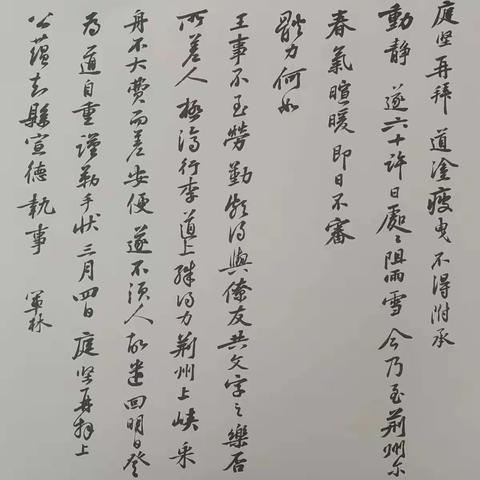 庭坚再拜 道塗疲曳 不得附承
動静 遂六十許日 處〻阻雨雪 今乃至荆州尔
春氣暄暖 即日不審
體力何如
王事不至勞勤 頗得與僚友共文字之樂否
所差人極濟行李 道上殊得力 荆州上峡 乘
舟不大費 而差安便 遂不須人 故遣回 明日登
為道自重 謹勒手状 三月四日 庭坚再拜上
公蕴知縣宣德執事 軍林